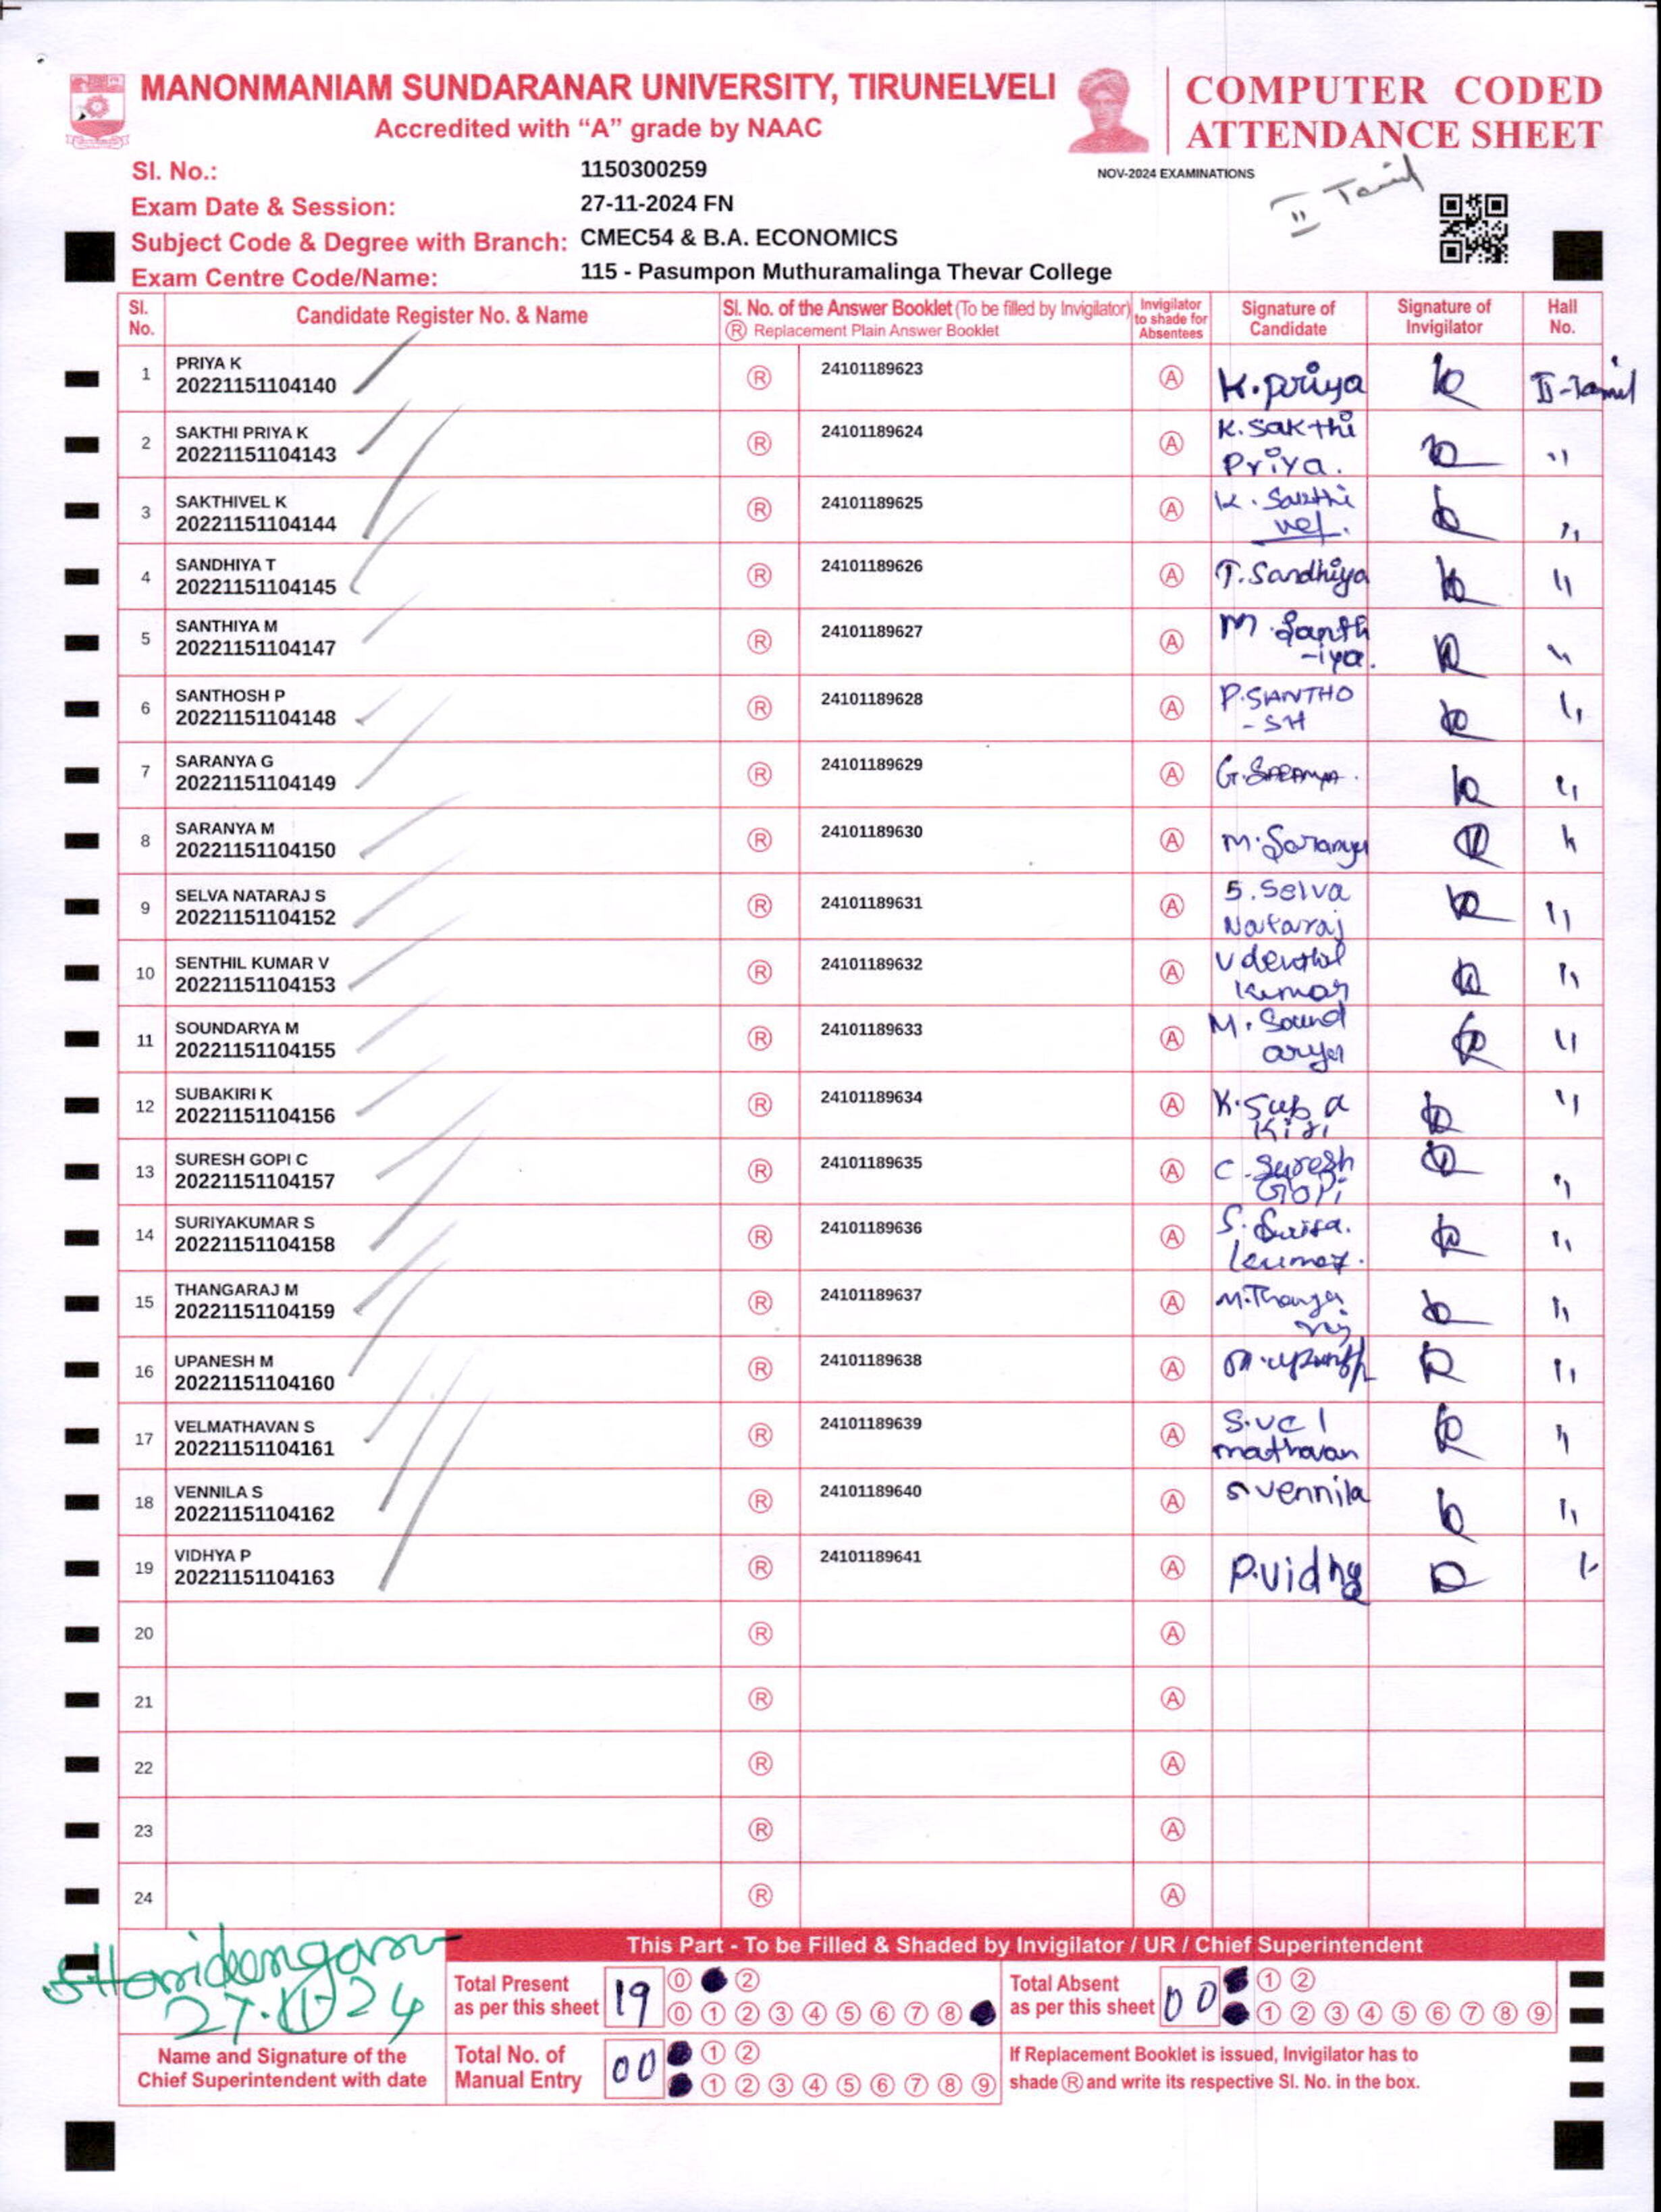 MANONMANIAM SUNDARANAR UNIVERSITY, TIRUNELVELI
Accredited with “A” grade by NAAC
COMPUTER CODED
ATTENDANCE SHEET
NOV-2024 EXAMINATIONS
II Tamil
Sl. No.: 1150300259
Exam Date & Session: 27-11-2024 FN
Subject Code & Degree with Branch: CMEC54 & B.A. ECONOMICS
Exam Centre Code/Name: 115 - Pasumpon Muthuramalinga Thevar College
Sl. No. Candidate Register No. & Name Sl. No. of the Answer Booklet (To be filled by Invigilator) Ⓡ Replacement Plain Answer Booklet Invigilator to shade for Absentees Signature of Candidate Signature of Invigilator Hall No.
1 PRIYA K 20221151104140 Ⓡ 24101189623 Ⓐ K.priya II-Tamil
2 SAKTHI PRIYA K 20221151104143 Ⓡ 24101189624 Ⓐ K.Sakthi Priya. "
3 SAKTHIVEL K 20221151104144 Ⓡ 24101189625 Ⓐ K.Sakthi vel. "
4 SANDHIYA T 20221151104145 Ⓡ 24101189626 Ⓐ T.Sandhiya "
5 SANTHIYA M 20221151104147 Ⓡ 24101189627 Ⓐ M.Santh -iya. "
6 SANTHOSH P 20221151104148 Ⓡ 24101189628 Ⓐ P.SANTHO -SH "
7 SARANYA G 20221151104149 Ⓡ 24101189629 Ⓐ "
8 SARANYA M 20221151104150 Ⓡ 24101189630 Ⓐ M.Saranya "
9 SELVA NATARAJ S 20221151104152 Ⓡ 24101189631 Ⓐ S.Selva Nataraj "
10 SENTHIL KUMAR V 20221151104153 Ⓡ 24101189632 Ⓐ Kumar "
11 SOUNDARYA M 20221151104155 Ⓡ 24101189633 Ⓐ M.Sound arya "
12 SUBAKIRI K 20221151104156 Ⓡ 24101189634 Ⓐ K.Suba Kiri "
13 SURESH GOPI C 20221151104157 Ⓡ 24101189635 Ⓐ C.Suresh Gopi "
14 SURIYAKUMAR S 20221151104158 Ⓡ 24101189636 Ⓐ "
15 THANGARAJ M 20221151104159 Ⓡ 24101189637 Ⓐ M.Thanga raj "
16 UPANESH M 20221151104160 Ⓡ 24101189638 Ⓐ "
17 VELMATHAVAN S 20221151104161 Ⓡ 24101189639 Ⓐ S.vel mathavan "
18 VENNILA S 20221151104162 Ⓡ 24101189640 Ⓐ S vennila "
19 VIDHYA P 20221151104163 Ⓡ 24101189641 Ⓐ "
20 Ⓡ Ⓐ
21 Ⓡ Ⓐ
22 Ⓡ Ⓐ
23 Ⓡ Ⓐ
24 Ⓡ Ⓐ
This Part - To be Filled & Shaded by Invigilator / UR / Chief Superintendent
27.11.24
Name and Signature of the
Chief Superintendent with date
Total Present as per this sheet 19
0 2
0 1 2 3 4 5 6 7 8
Total Absent as per this sheet 00
1 2
1 2 3 4 5 6 7 8 9
Total No. of Manual Entry 00
1 2
1 2 3 4 5 6 7 8 9
If Replacement Booklet is issued, Invigilator has to
shade Ⓡ and write its respective Sl. No. in the box.